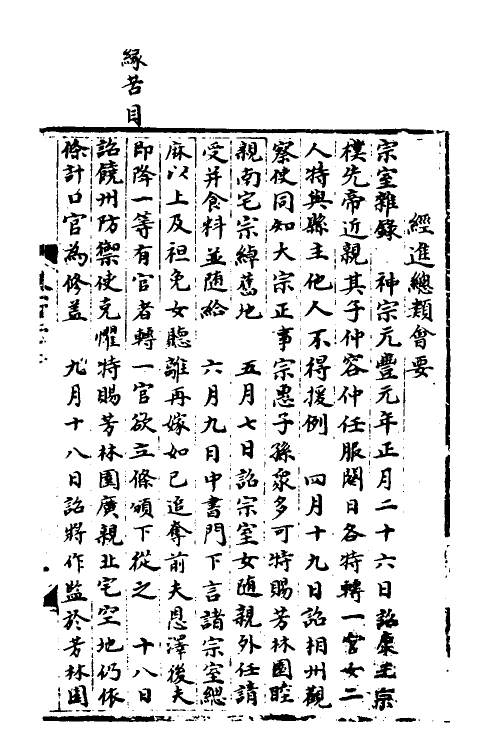 緣苦目
經進總類會要
宗室雜錄　神宗元豐元年正月二十六日詔康王宗
樸先帝近親其子仲容仲任服闋日各特轉一官女二
人特與縣主他人不得援例　四月十九日詔相州觀
察使同知大宗正事宗惠子孫衆多可特賜芳林園睦
親南宅宗綽舊地　五月七日詔宗室女隨親外任請
受并食料並隨給　六月九日中書門下言諸宗室緦
麻以上及袒免女聽離再嫁如已追奪前夫恩澤後夫
即降一等有官者轉一官欲立條頒下從之　十八日
詔饒州防禦使克懼特賜芳林園廣親北宅空地仍依
條計口官為修蓋　九月十八日詔將作監於芳林園